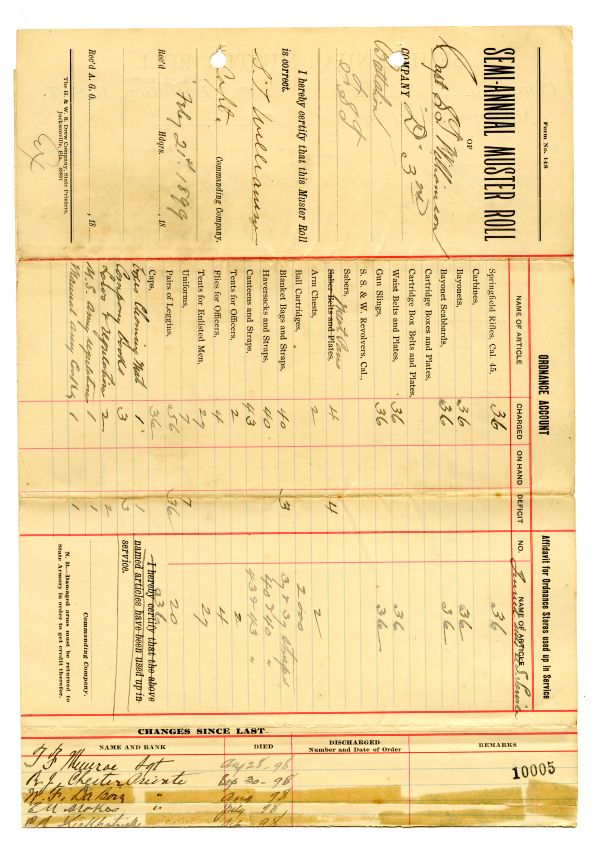 Form No. 148
SEMI-ANNUAL MUSTER ROLL
OF
Capt S. J. Williamson
COMPANY "D" 3rd
Battalion
F. S. T.
I hereby certify that this Muster Roll
is correct.
S. J. Williamson
Capt. Commanding Company.
Rec'd Hdqrs. Feby 21st 1899, 18
Rec'd A. G. O. , 18
The H. & W. B. Drew Company, State Printers,
Jacksonville, Fla.
ORDNANCE ACCOUNT
NAME OF ARTICLE CHARGED ON HAND DEFICIT
Springfield Rifles, Cal. 45, 36
Carbines,
Bayonets, 36
Bayonet Scabbards, 36
Cartridge Boxes and Plates,
Cartridge Box Belts and Plates,
Waist Belts and Plates, 36
Gun Slings, 36
S. & W. Revolvers, Cal.,
Sabers,
Saber Belts and Plates, 4 4
Arm Chests, 2
Ball Cartridges,
Blanket Bags and Straps, 40 3
Haversacks and Straps, 40
Canteens and Straps, 43
Tents for Officers, 2
Flies for Officers, 4
Tents for Enlisted Men, 27
Uniforms, 7 7
Pairs of Leggins, 56 36
Caps, 36
1 1
Company Books 3 3
Laws & Regulations 2 2
U. S. Army Regulations 1 1
Manual 1 1
Affidavit for Ordnance Stores used up in Service
NO. NAME OF ARTICLE
36
36
36
36
36
2
2,000
37 & 37 Straps
40 & 40 "
43 & 43 "
2
4
27
20
36
I hereby certify that the above
named articles have been used up in
service.
Commanding Company.
N. B.—Damaged arms must be returned to
State Armory in order to get credit therefor.
CHANGES SINCE LAST
NAME AND RANK DIED DISCHARGED Number and Date of Order REMARKS
10005
Munroe Sgt Aug 28-98
R. J. Chester Private Sep 20-98
W. F. " Aug 98
Stokes " July 98
Kirkpatrick 98